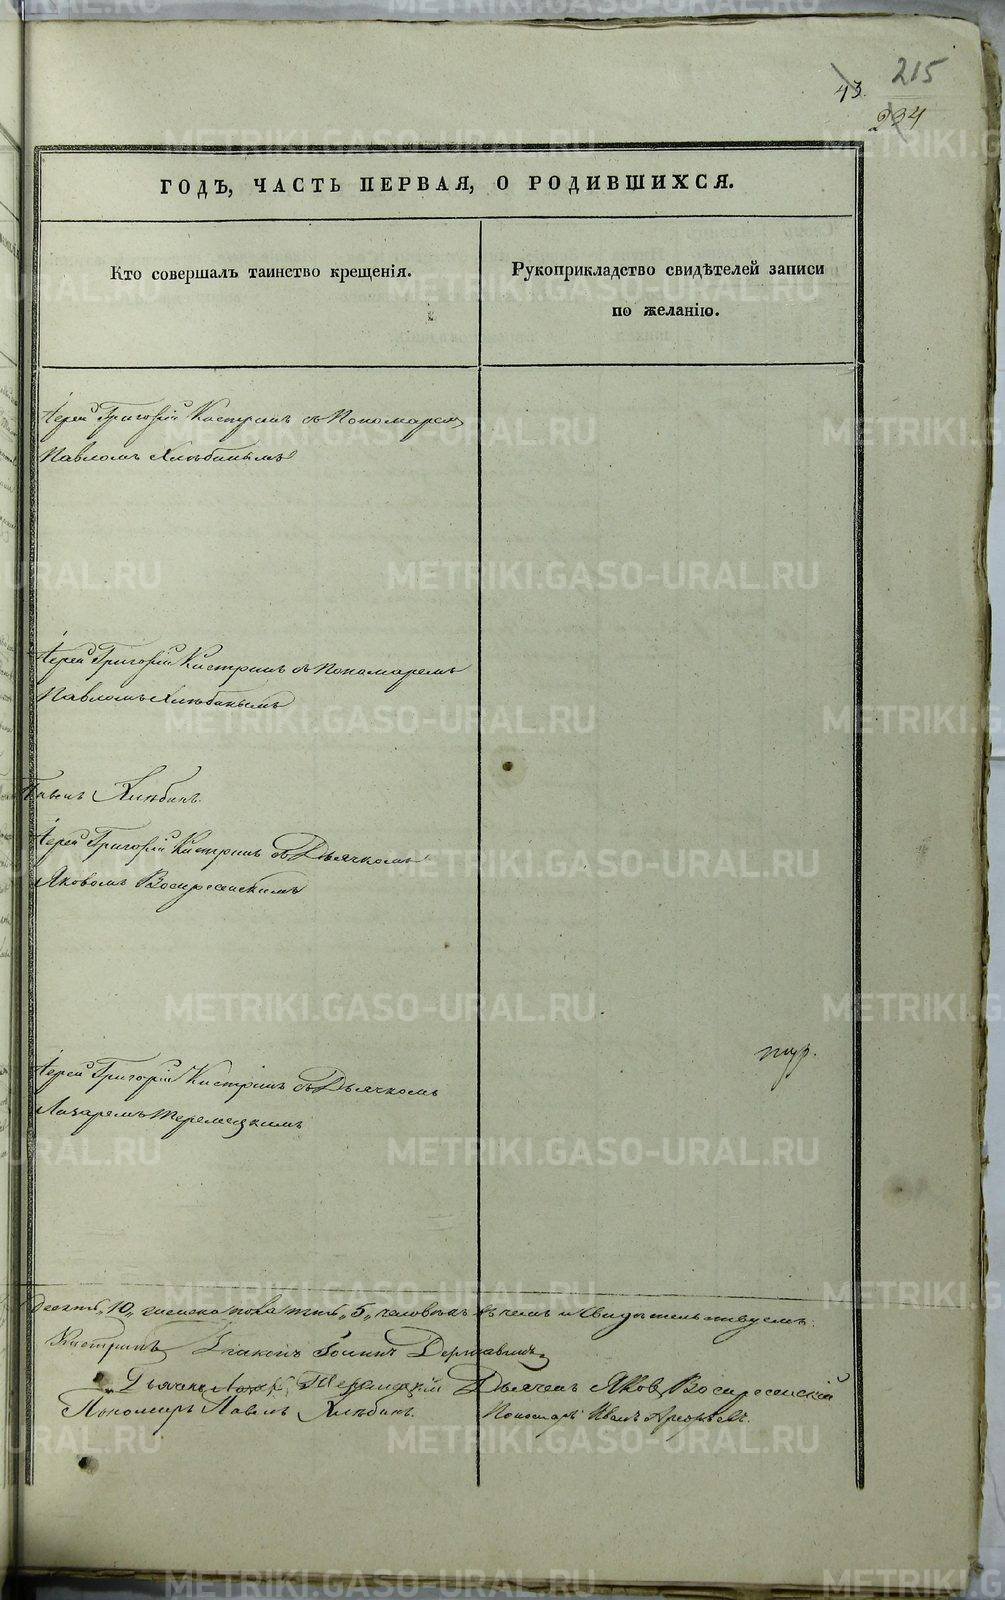 43.
215
234
ГОДЪ, ЧАСТЬ ПЕРВАЯ, О РОДИВШИХСЯ.
Кто совершалъ таинство крещенія.
Рукоприкладство свидѣтелей записи
по желанію.
Іерей Григорій Кистринъ съ Пономаремъ
Павломъ Хлѣбинымъ
Іерей Григорій Кистринъ съ Пономаремъ
Павломъ Хлѣбинымъ
Павелъ Хлѣбинъ.
Іерей Григорій Кистринъ съ Дьячкомъ
Яковомъ Воскресенскимъ
Іерей Григорій Кистринъ съ Дьячкомъ
Лазаремъ Теремецкимъ
десять „10„ женска пола пять „5„ человѣкъ въ чемъ и свидѣтельствуемъ:
Кистринъ Діаконъ Іоаннъ Державинъ
Дьячекъ Лазарь Теремецкій Дьячекъ Яковъ Воскресенскій
Пономарь Павелъ Хлѣбинъ. Пономарь Иванъ
METRIKI.GASO-URAL.RU